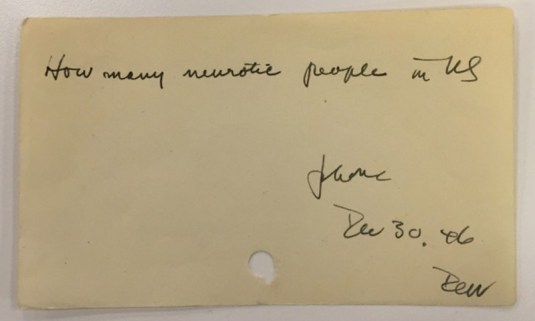 How many neurotic people in US
phone
Dec 30, 46